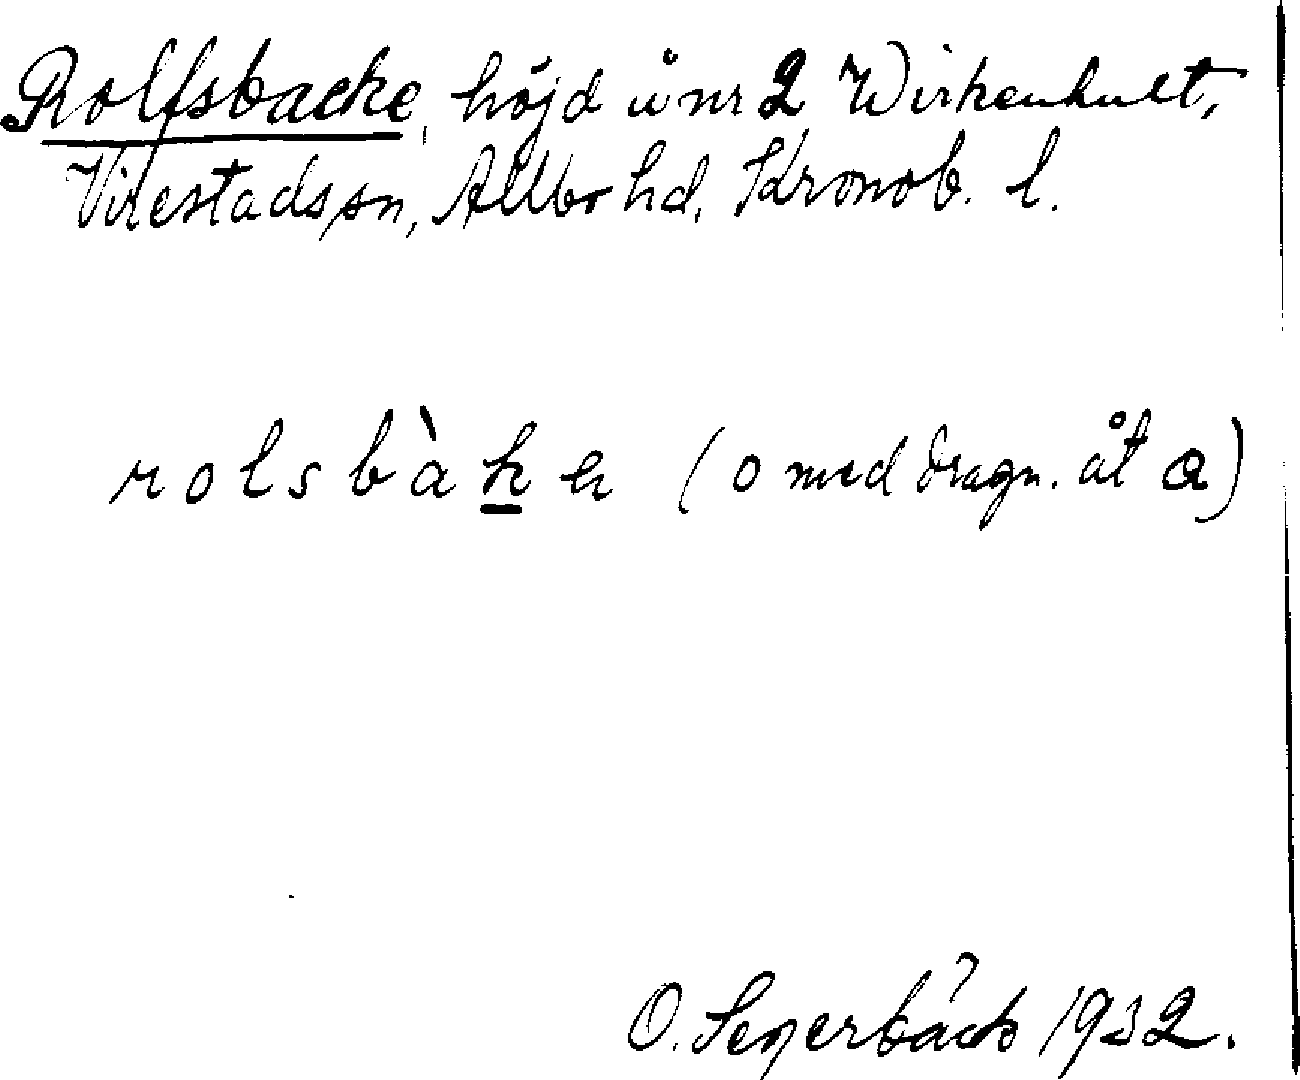 Rolfsbacke, höjd å nr 2 Wirkenhult,
Virestads sn, Allbo hd, Kronob. l.
rolsbàkeṇ (o med dragn. åt a)
O. Segerbäck 1932.